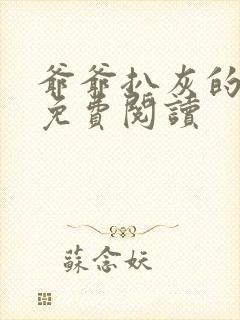 爺爺扒灰的
免費閱讀
蘇念妖